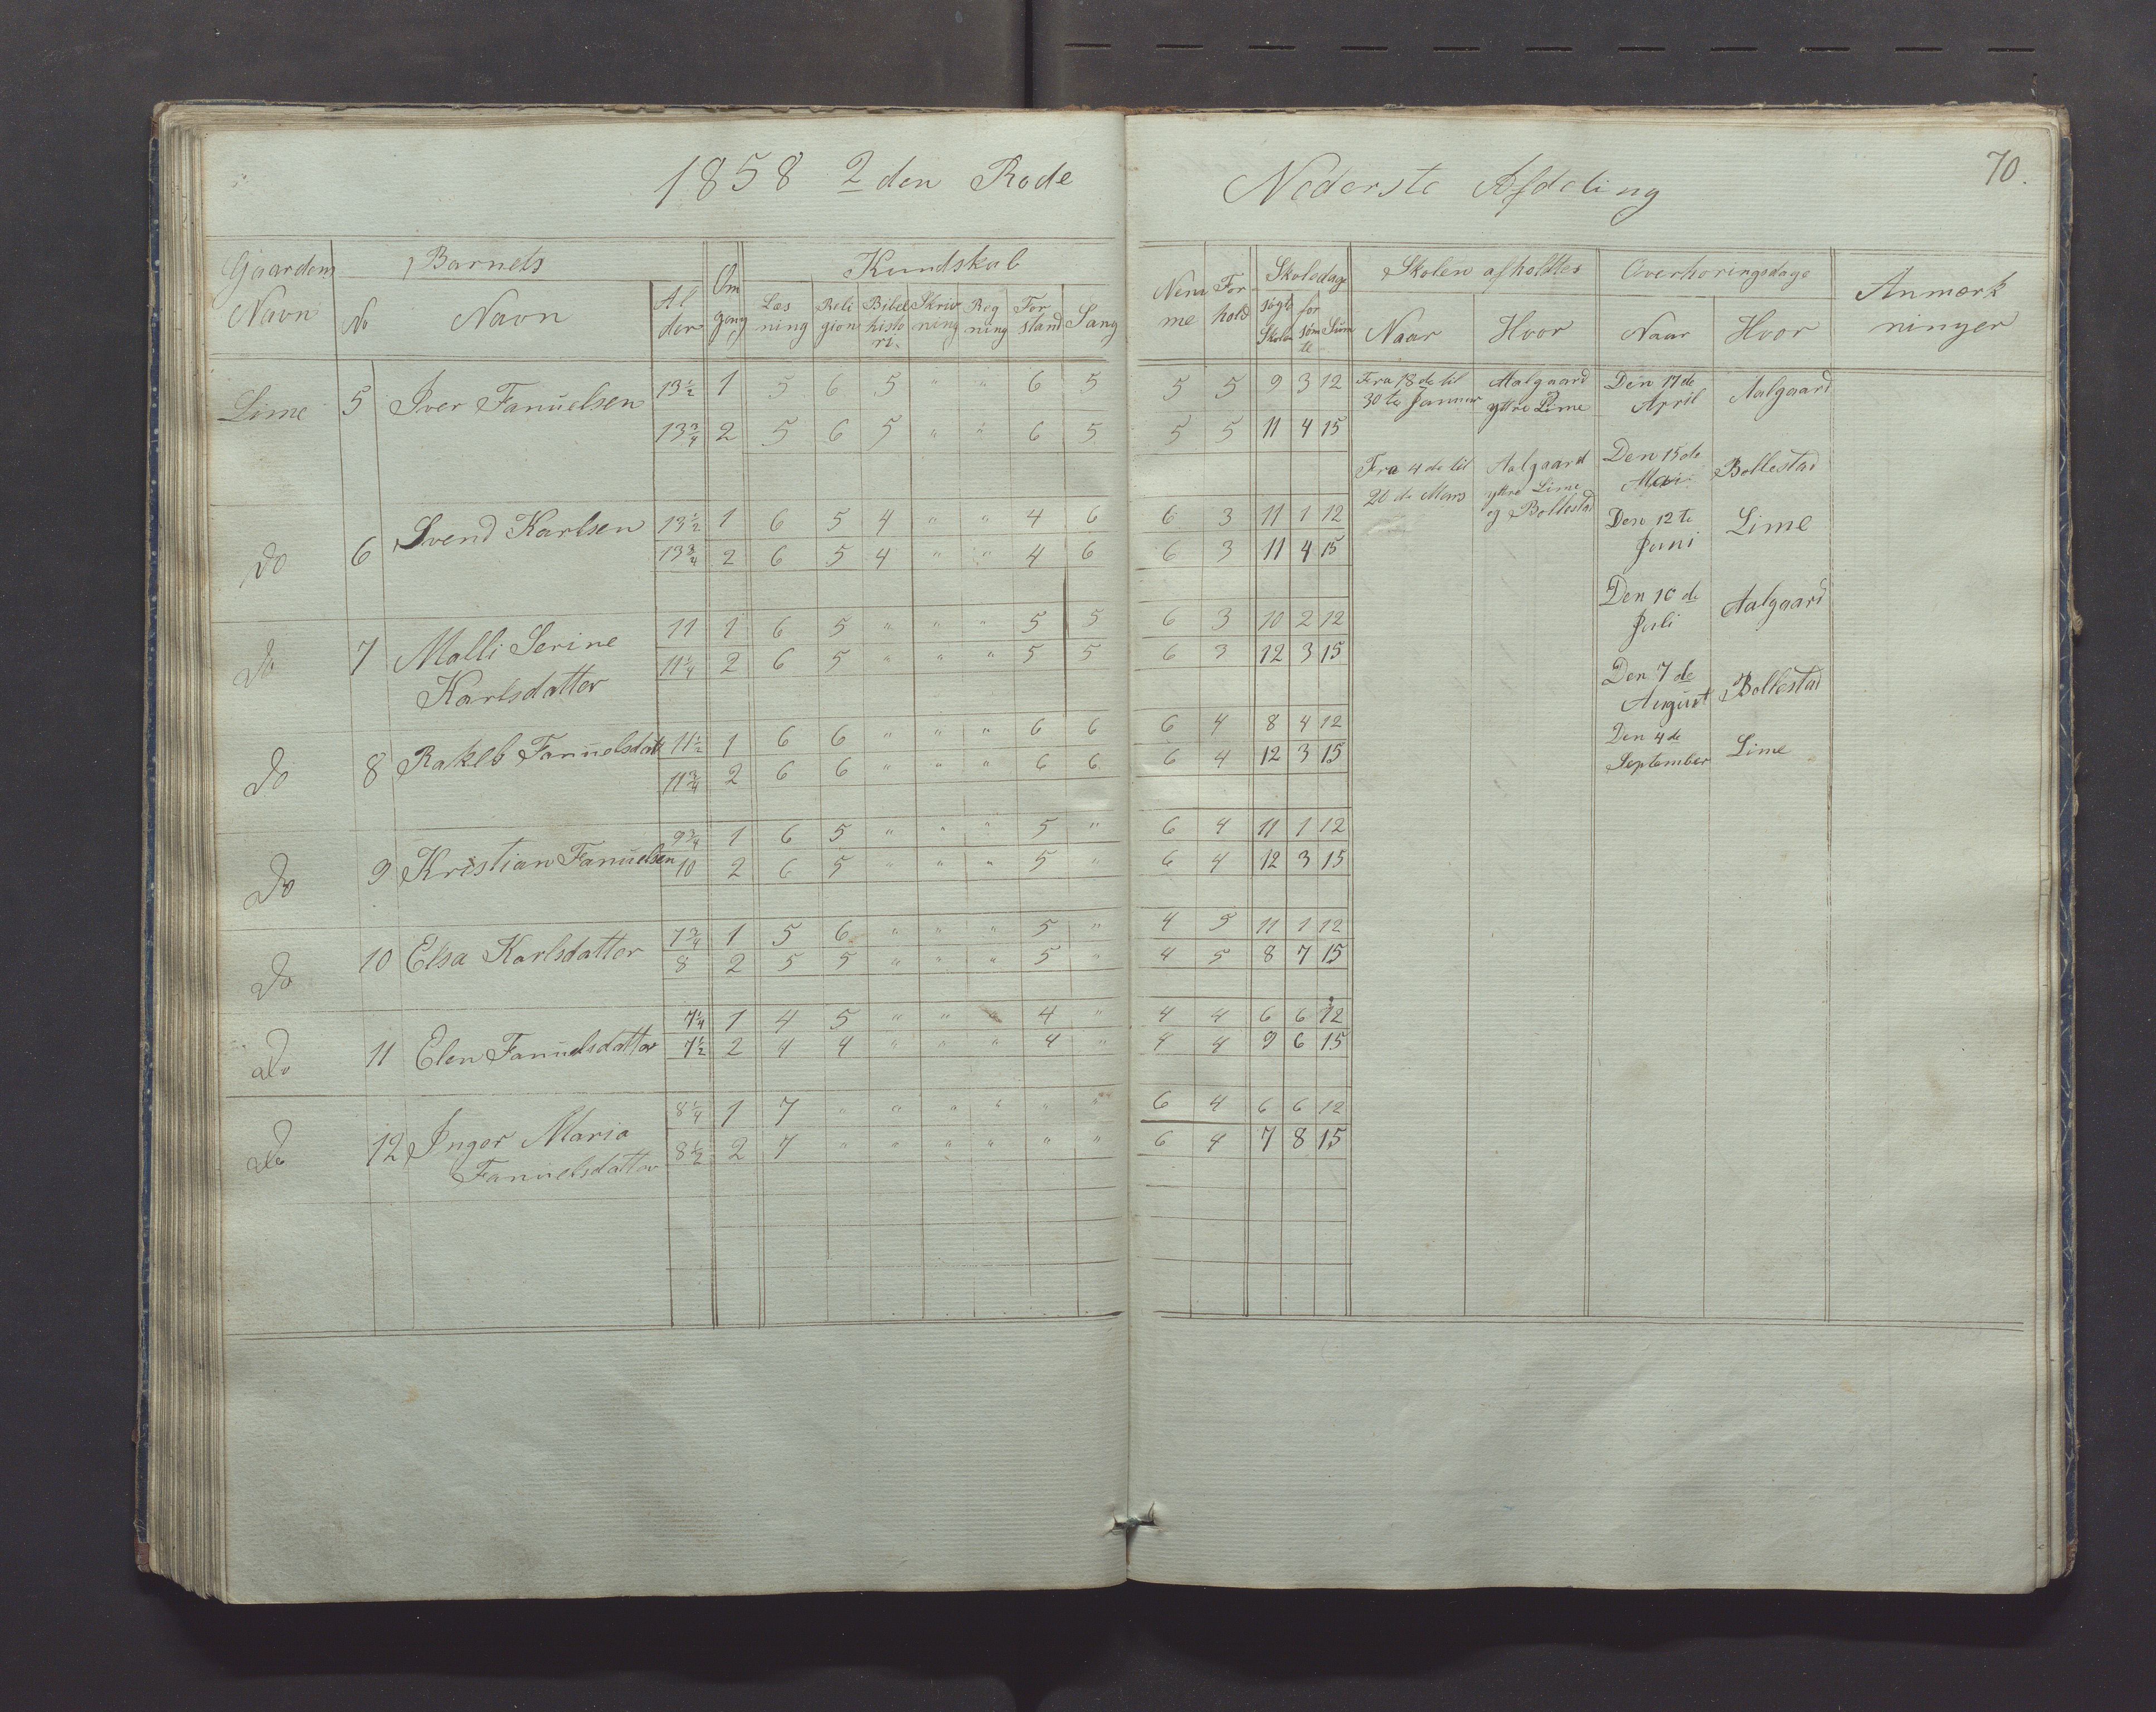 1858 2den Rode
Nederste Afdeling
70.
Gaardens Navn
Barnets
No Navn Alder
Omgang
Kundskab
Læsning Religion Bibelhistori. Skrivning Regning Forstand Sang
Nemme Forhold
Skoledage
søgt Skolen forsømte Sum
Skolen afholdtes
Naar Hvor
Overhoringsdage
Naar Hvor
Anmærkninger
Lime 5 Iver Fanuelsen 13½ 1 5 6 5 " " 6 5 5 5 9 3 12
13¾ 2 5 6 5 " " 6 5 5 5 11 4 15
do 6 Svend Karlsen 13½ 1 6 5 4 " " 4 6 6 3 11 1 12
13¾ 2 6 5 4 " " 4 6 6 3 11 4 15
do 7 Malli Serine 11 1 6 5 " " " 5 5 6 3 10 2 12
Karlsdatter 11¼ 2 6 5 " " " 5 5 6 3 12 3 15
do 8 Rakel Fanuelsdatt 11½ 1 6 6 " " " 6 6 6 4 8 4 12
11¾ 2 6 6 " " " 6 6 6 4 12 3 15
do 9 Kristian Fanuelsen 9¾ 1 6 5 " " " 5 " 6 4 11 1 12
10 2 6 5 " " " 5 " 6 4 12 3 15
do 10 Elsa Karlsdatter 7¾ 1 5 6 " " " 5 " 4 5 11 1 12
8 2 5 5 " " " 5 " 4 5 8 7 15
do 11 Elen Fanuelsdatter 7¼ 1 4 5 " " " 4 " 4 4 6 6 12
7½ 2 4 4 " " " 4 " 4 4 9 6 15
do 12 Inger Maria 8¼ 1 7 " " " " " " 6 4 6 6 12
Fanuelsdatter 8½ 2 7 " " " " " " 6 4 7 8 15
Fra 18de til
30te Januar
Aalgaard
yttre Lime
Fra 4de til
20de Mars
Aalgaard
yttre Lime
og Bollestad
Den 17de
April
Aalgaard
Den 15de
Mai
Bollestad
Den 12te
Juni
Lime
Den 10de
Juli
Aalgaard
Den 7de
August
Bollestad
Den 4de
September
Lime